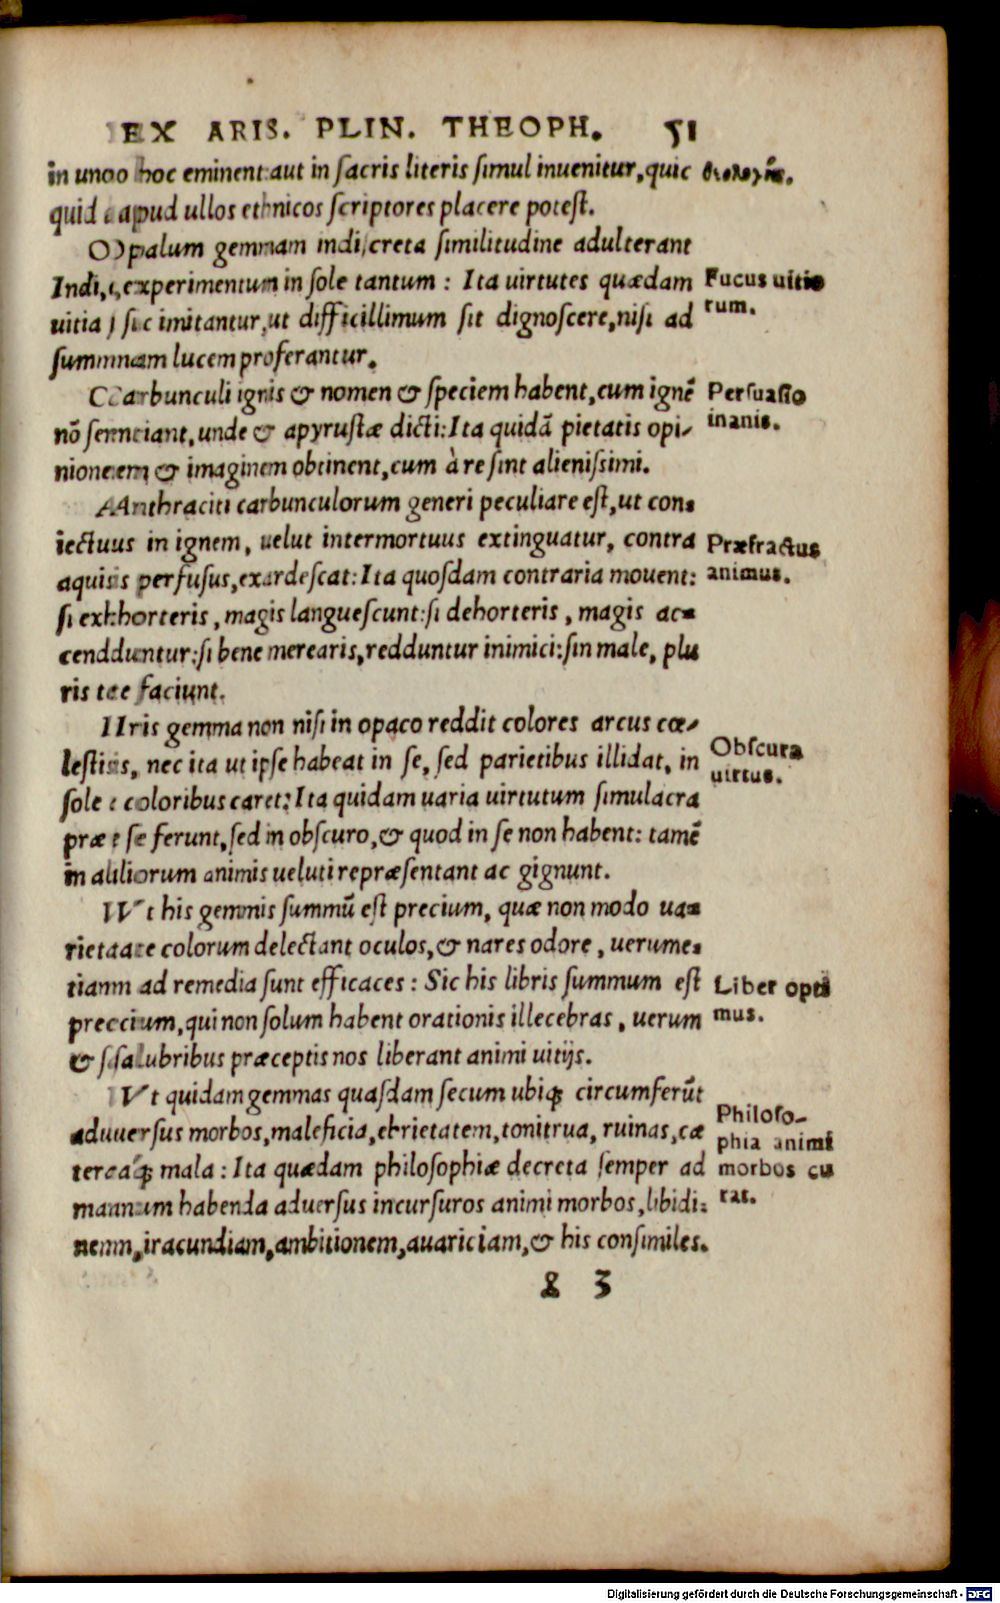 EX ARIS. PLIN. THEOPH. 51
in uno hoc eminent aut in sacris literis simul inuenitur, quic
quid apud ullos ethnicos scriptores placere potest.
Opalum gemmam indiscreta similitudine adulterant
Indi, experimentum in sole tantum : Ita uirtutes quædam
Fucus uitio
uitia sic imitantur, ut difficillimum sit dignoscere, nisi ad
rum.
summam lucem proferantur.
Carbunculi ignis & nomen & speciem habent, cum ignē
Persuasio
nō sentiant, unde & apyrustæ dicti: Ita quidā pietatis opi-
inanis.
nionem & imaginem obtinent, cum à re sint alienissimi.
Anthraciti carbunculorum generi peculiare est, ut con-
iectus in ignem, uelut intermortuus extinguatur, contra
Præfractus
aquis perfusus, exardescat: Ita quosdam contraria mouent:
animus.
si exhorteris, magis languescunt: si dehorteris, magis ac-
cenduntur: si bene merearis, redduntur inimici: sin male, plu
ris te faciunt.
Iris gemma non nisi in opaco reddit colores arcus cœ-
Obscura
lestis, nec ita ut ipse habeat in se, sed parietibus illidat, in
uirtus.
sole coloribus caret: Ita quidam uaria uirtutum simulacra
præ se ferunt, sed in obscuro, & quod in se non habent: tamē
in aliorum animis ueluti repræsentant ac gignunt.
Vt his gemmis summū est precium, quæ non modo ua-
rietate colorum delectant oculos, & nares odore, uerume-
tiam ad remedia sunt efficaces : Sic his libris summum est
Liber opti
precium, qui non solum habent orationis illecebras, uerum
mus.
& salubribus præceptis nos liberant animi uitijs.
Vt quidam gemmas quasdam secum ubiq; circumferūt
Philoso-
aduersus morbos, maleficia, ebrietatem, tonitrua, ruinas, cæ
phia animi
teraq́; mala : Ita quædam philosophiæ decreta semper ad
morbos cu
manum habenda aduersus incursuros animi morbos, libidi-
rat.
nem, iracundiam, ambitionem, auariciam, & his consimiles.
g 3
Digitalisierung gefördert durch die Deutsche Forschungsgemeinschaft - DFG